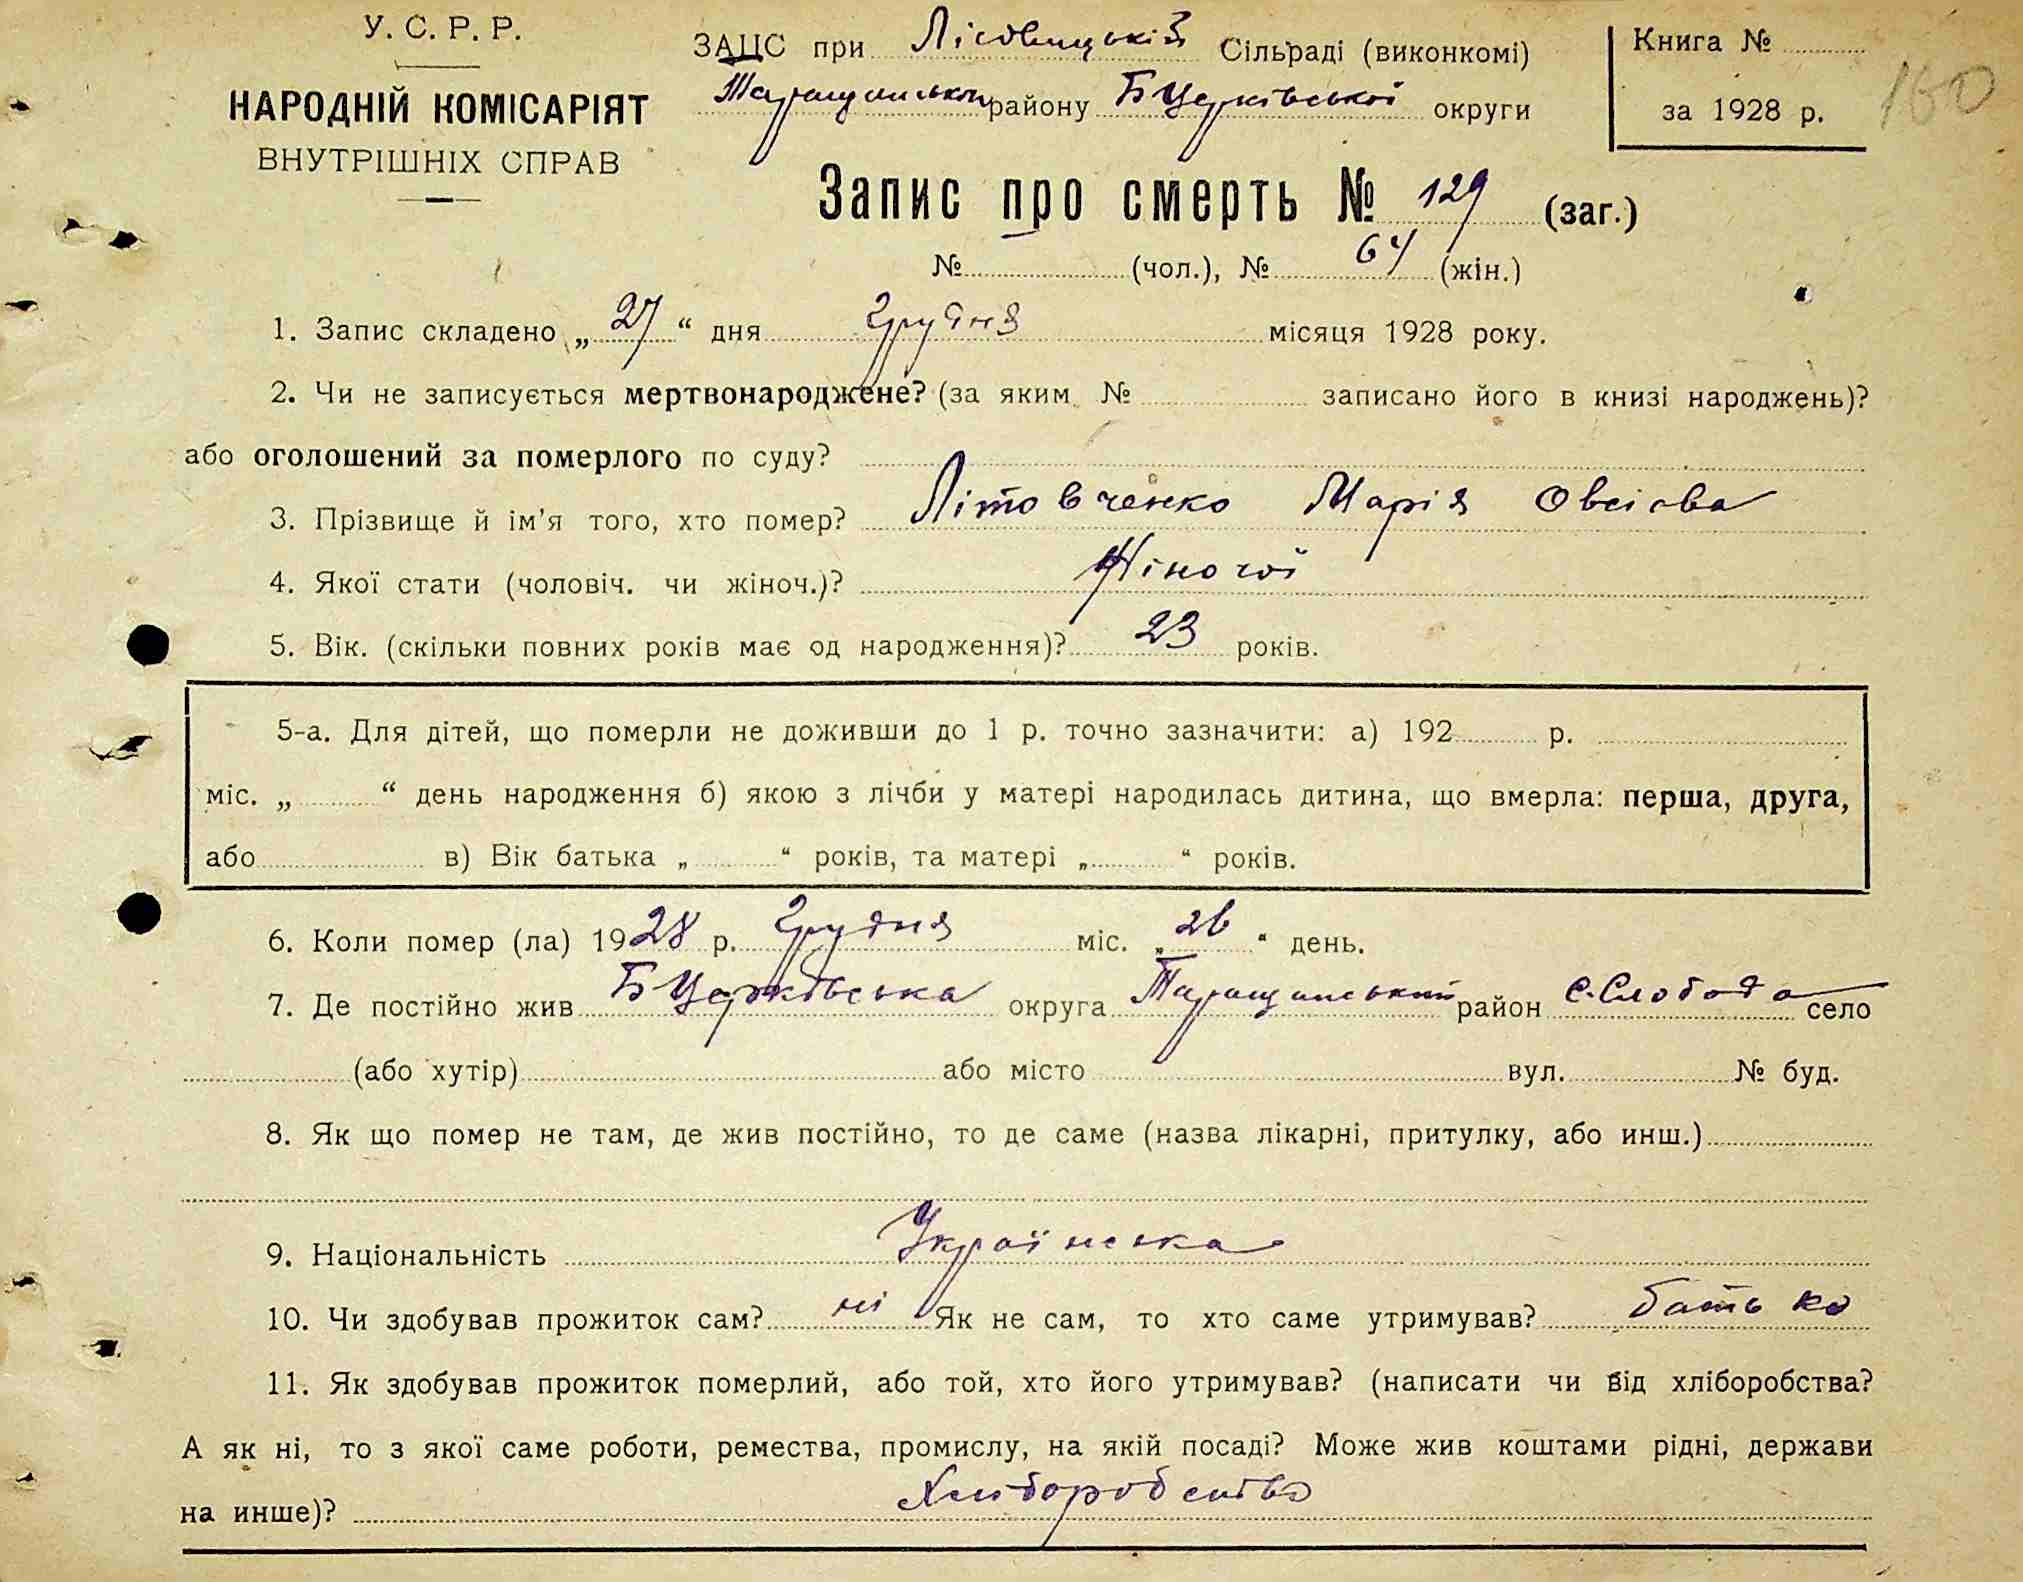 У. С. Р. Р.
НАРОДНІЙ КОМІСАРІЯТ
ВНУТРІШНІХ СПРАВ
ЗАЦС при Лісовицькій Сільраді (виконкомі)
Таращанського району БЦерківської округи
Книга №
за 1928 р.
160
Запис про смерть № 129 (заг.)
№ (чол.), № 64 (жін.)
1. Запис складено „27“ дня Грудня місяця 1928 року.
2. Чи не записується мертвонароджене? (за яким № записано його в книзі народжень)?
або оголошений за померлого по суду?
3. Прізвище й ім’я того, хто помер? Літовченко Марія Овсієва
4. Якої стати (чоловіч. чи жіноч.)? Жіночої
5. Вік. (скільки повних років має од народження)? 23 років.
5-а. Для дітей, що померли не доживши до 1 р. точно зазначити: а) 192 р.
міс. „ “ день народження б) якою з лічби у матері народилась дитина, що вмерла: перша, друга,
або в) Вік батька „ “ років, та матері „ “ років.
6. Коли помер (ла) 1928 р. Грудня міс. „26“ день.
7. Де постійно жив БЦерківська округа Таращанський район с. Слобода село
(або хутір) або місто вул. № буд.
8. Як що помер не там, де жив постійно, то де саме (назва лікарні, притулку, або инш.)
9. Національність Українська
10. Чи здобував прожиток сам? ні Як не сам, то хто саме утримував? батько
11. Як здобував прожиток померлий, або той, хто його утримував? (написати чи від хліборобства?
А як ні, то з якої саме роботи, ремества, промислу, на якій посаді? Може жив коштами рідні, держави
на инше)? Хліборобство